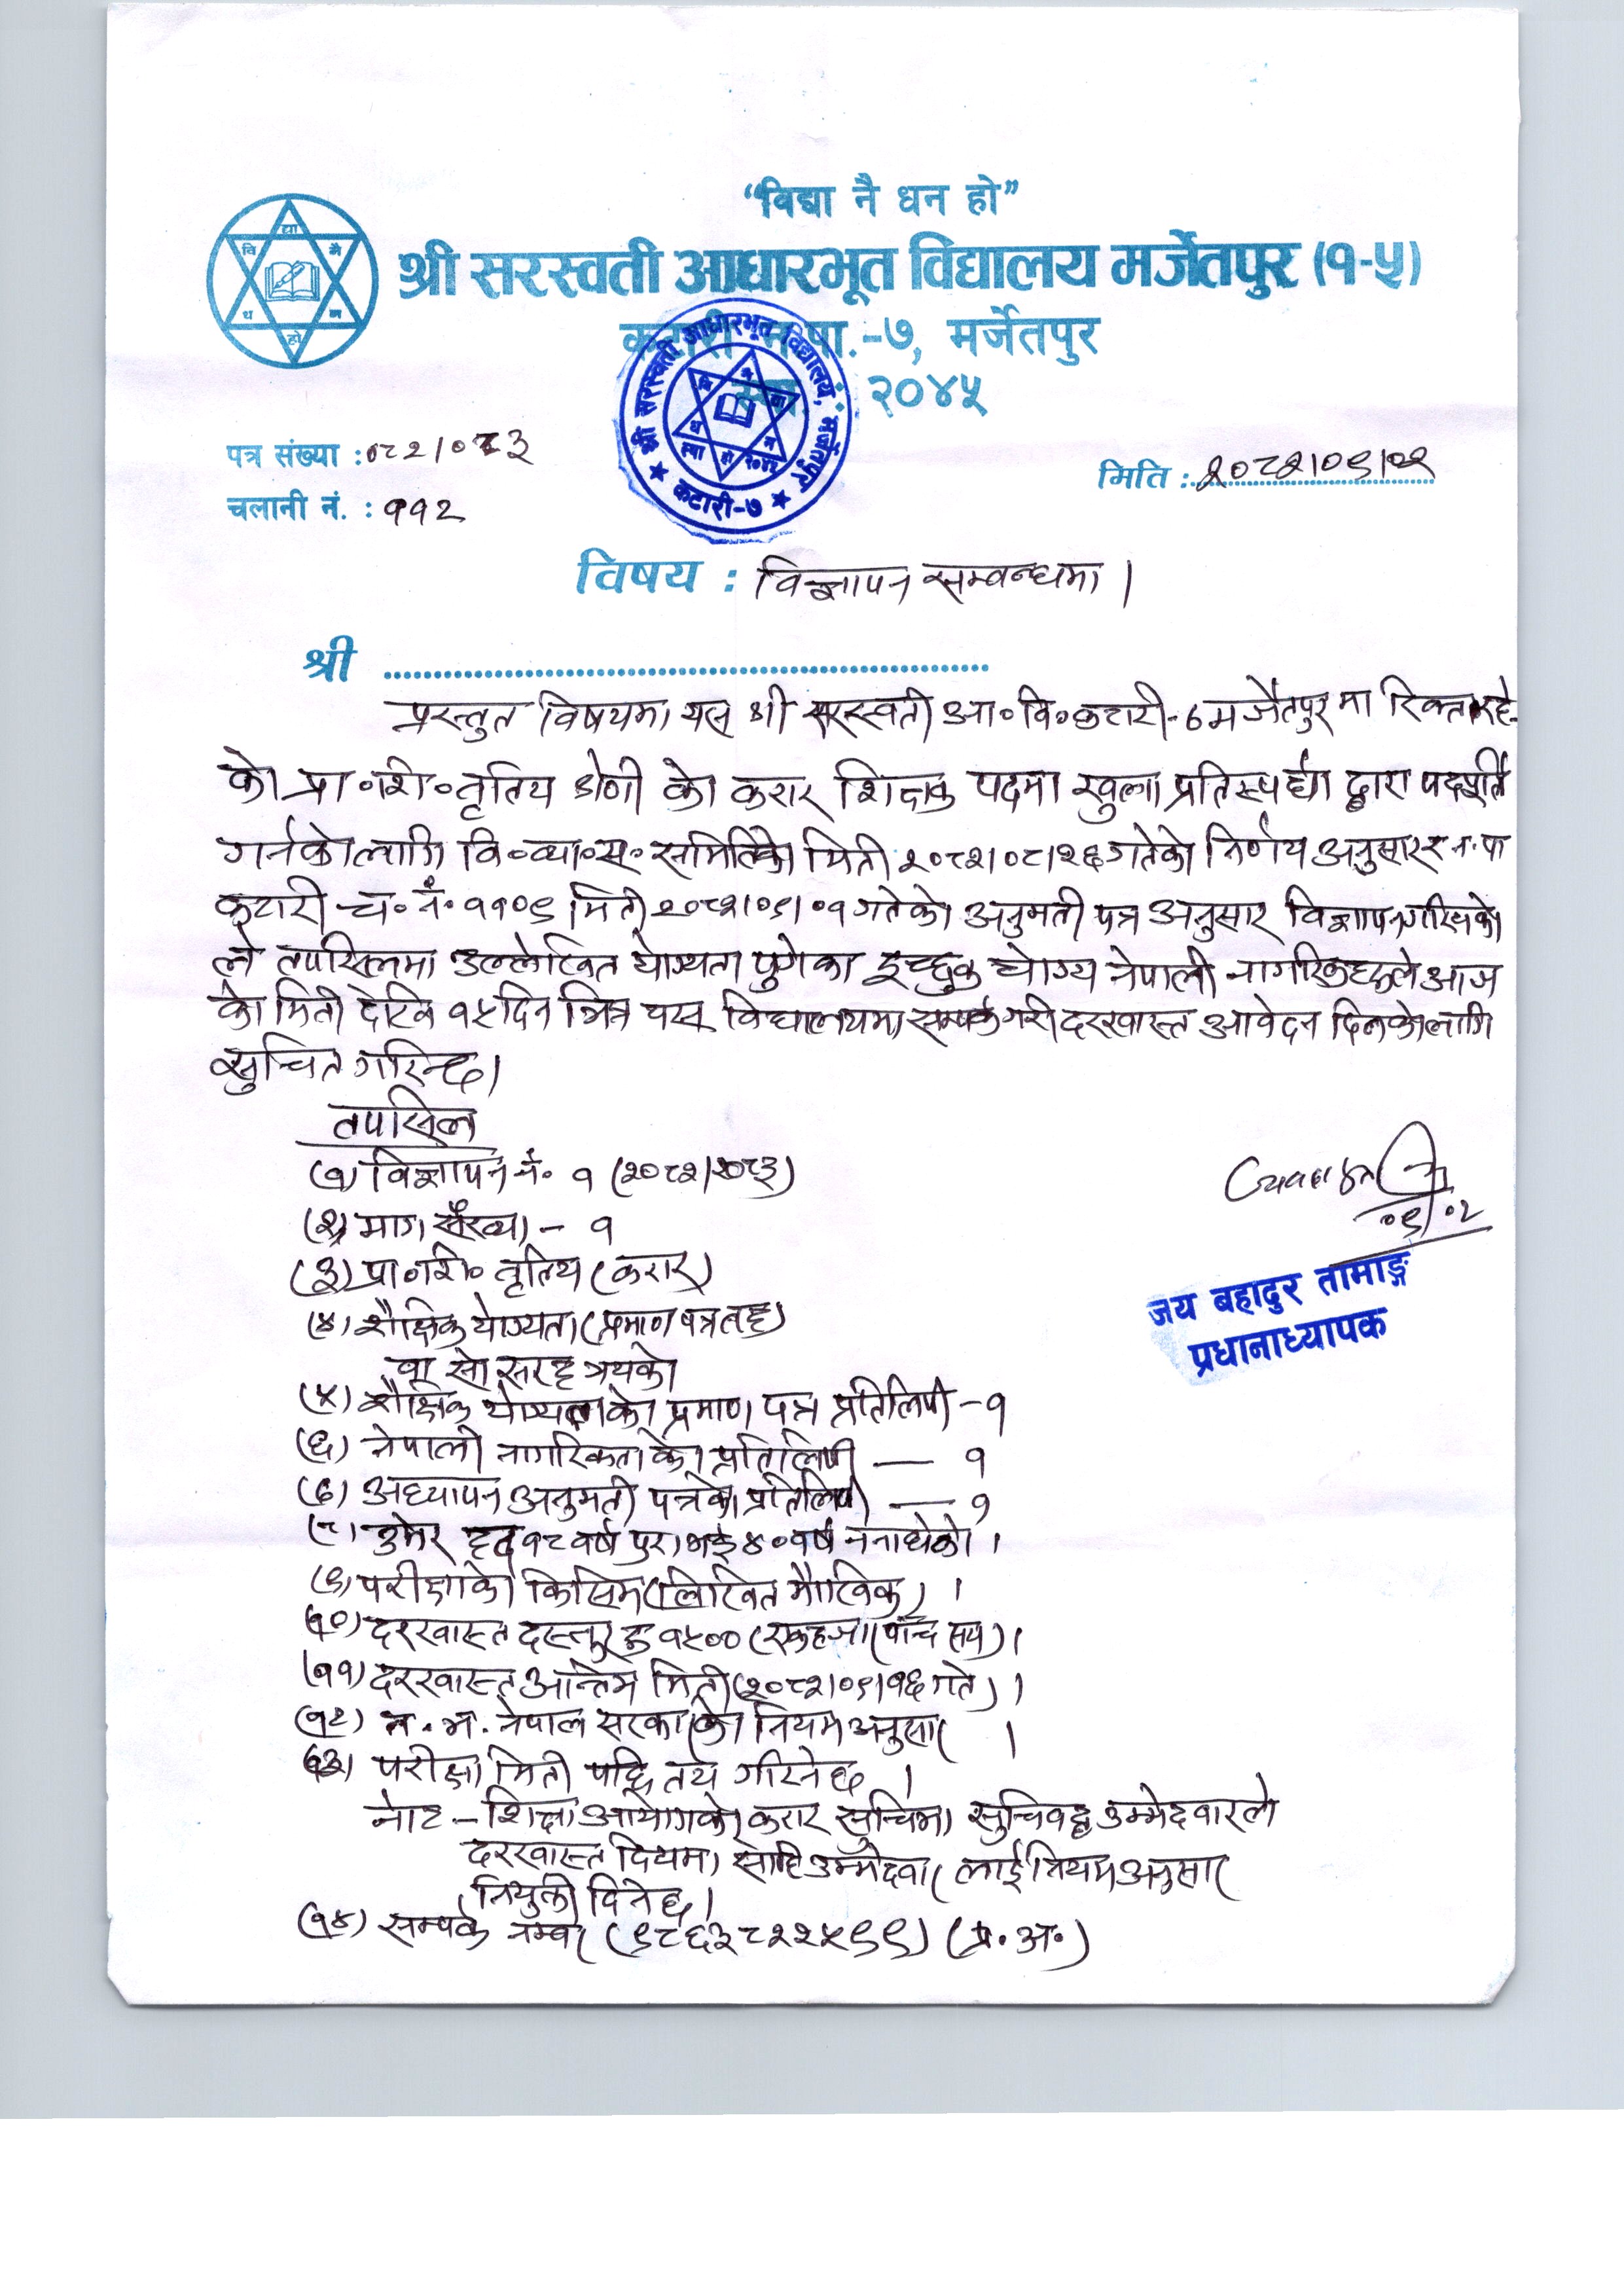 “विद्या नै धन हो”
श्री सरस्वती आधारभूत विद्यालय मर्जेतपुर (१-५)
कटारी न.पा.-७, मर्जेतपुर
स्था. : २०४५
श्री सरस्वती आधारभूत विद्यालय, मर्जेतपुर
कटारी-७
पत्र संख्या : ०८२/०८३
मिति : २०८२/०९/०२
चलानी नं. : ११२
विषय : विज्ञापन सम्वन्धमा ।
श्री
प्रस्तुत विषयमा यस श्री सरस्वती आ॰वि॰कटारी-७ मर्जेतपुर मा रिक्त रहे-
को प्रा॰शि॰तृतिय श्रेणी को करार शिक्षक पदमा खुल्ला प्रतिस्पर्धा द्वारा पदपूर्ति
गर्नकोलागि वि॰व्या॰स॰समितिको मिती २०८२।०८।२६ गतेको निर्णय अनुसार र न.पा
कटारी च॰नं॰ ११०९ मिती २०८२।०९।०१ गतेको अनुमती पत्र अनुसार विज्ञापन गरिएको
ले तपसिलमा उल्लेखित योग्यता पुगेका इच्छुक योग्य नेपाली नागरिकहरूले आज
को मिती देखि १५ दिन भित्र यस विद्यालयमा सम्पर्क गरी दरखास्त आवेदन दिनकोलागि
सुचित गरिन्छ।
तपसिल
(१) विज्ञापन नं॰ १ (२०८२/२०८३)
(२) माग संख्या - १
(३) प्रा॰शि॰ तृतिय (करार)
(४) शैक्षिक योग्यता (प्रमाण पत्र तह)
वा सो सरह भएको
(५) शैक्षिक योग्यताको प्रमाण पत्र प्रतिलिपी - १
(६) नेपाली नागरिकताको प्रतिलिपी — १
(७) अध्यापन अनुमती पत्रको प्रतिलिपी — १
(८) उमेर हद १८ वर्ष पुरा भई ४० वर्ष ननाघेको ।
(९) परीक्षाको किसिम (लिखित मौखिक) ।
(१०) दरखास्त दस्तुर रु १५०० (एकहजार पाँच सय) ।
(११) दरखास्त अन्तिम मिती (२०८२।०९।१६ गते) ।
(१२) त.भ. नेपाल सरकारको नियम अनुसार ।
(१३) परीक्षा मिती पछि तय गरिनेछ ।
नोट - शिक्षा आयोगको करार सुचिमा सुचिवद्ध उम्मेदवारले
दरखास्त दियमा सोहि उम्मेदवार लाई नियम अनुसार
नियुक्ती दिनेछ ।
(१४) सम्पर्क नम्वर (९८६३८२२५९९) (प्र॰अ॰)
०९/०२
जय बहादुर तामाङ्ग
प्रधानाध्यापक